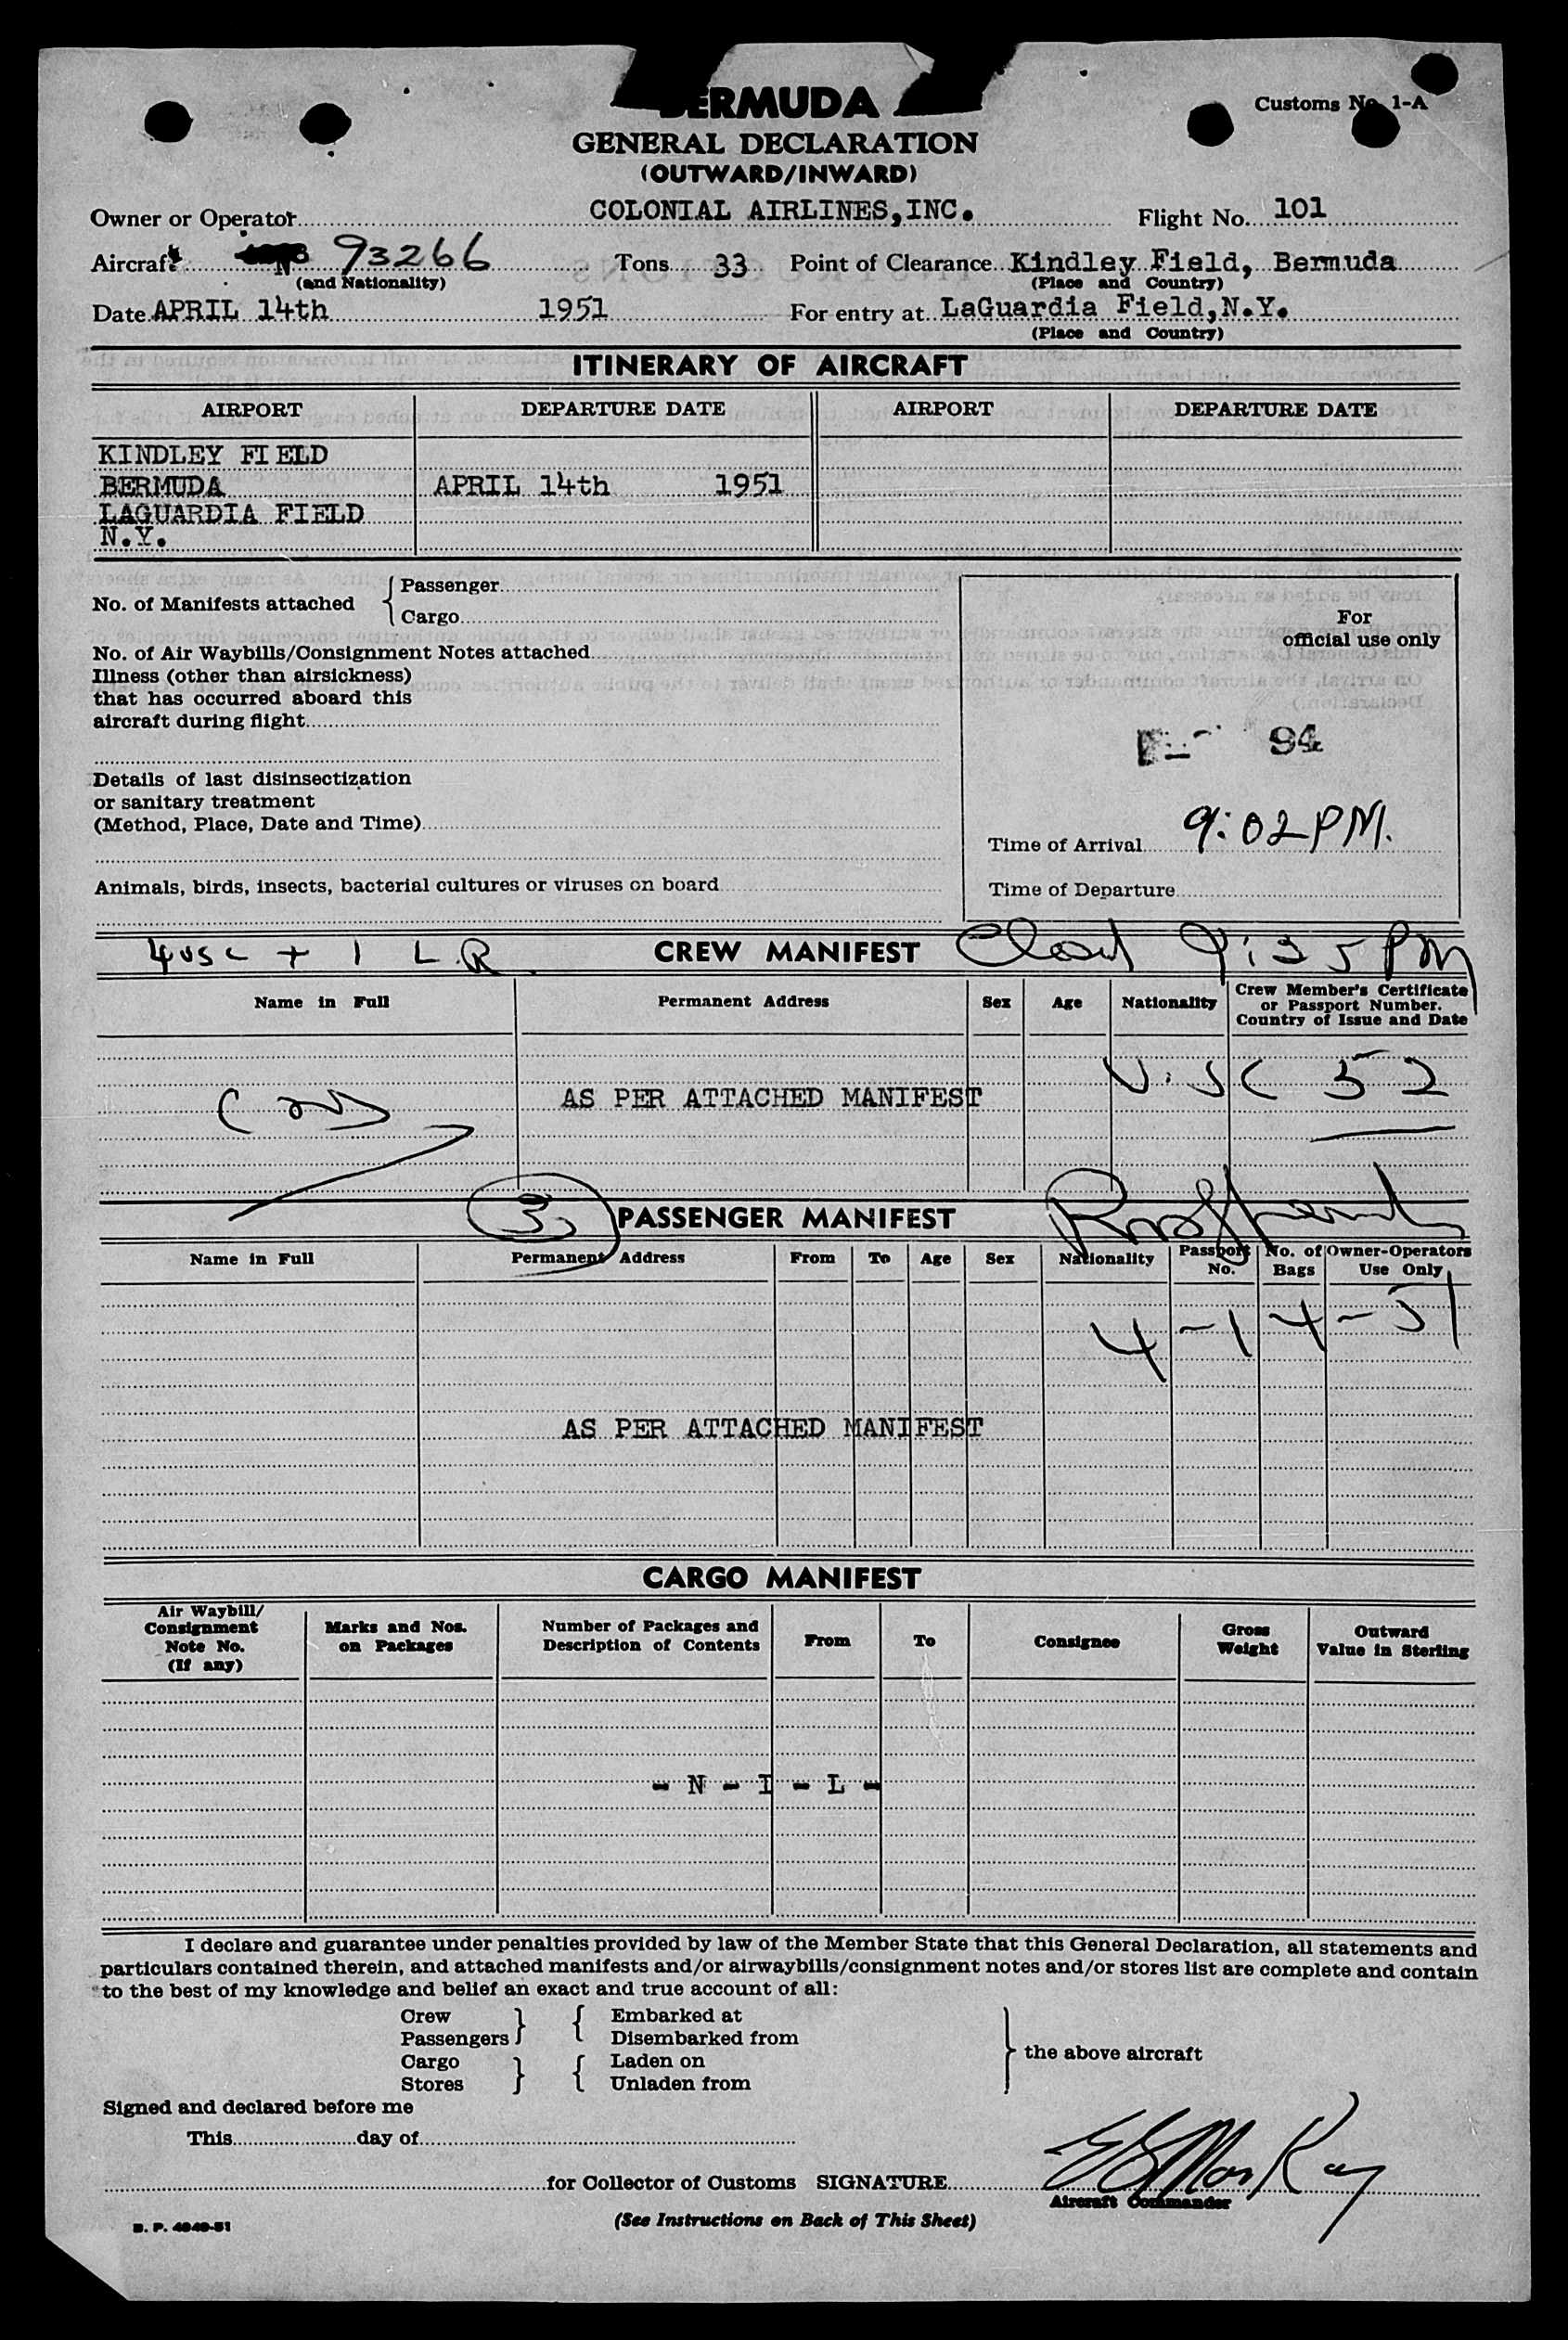 ERMUDA
Customs No. 1-A
GENERAL DECLARATION
(OUTWARD/INWARD)
Owner or Operator COLONIAL AIRLINES, INC. Flight No. 101
Aircraft N 93266 Tons 33 Point of Clearance Kindley Field, Bermuda
(and Nationality) (Place and Country)
Date APRIL 14th 1951 For entry at LaGuardia Field, N.Y.
(Place and Country)
ITINERARY OF AIRCRAFT
AIRPORT DEPARTURE DATE AIRPORT DEPARTURE DATE
KINDLEY FIELD
BERMUDA APRIL 14th 1951
LAGUARDIA FIELD
N.Y.
No. of Manifests attached { Passenger
Cargo
For
official use only
No. of Air Waybills/Consignment Notes attached
Illness (other than airsickness)
that has occurred aboard this
aircraft during flight
94
Details of last disinsectization
or sanitary treatment
(Method, Place, Date and Time)
Time of Arrival 9:02 PM.
Animals, birds, insects, bacterial cultures or viruses on board
Time of Departure
4 USC + 1 L.R. CREW MANIFEST 9:35 PM
Name in Full Permanent Address Sex Age Nationality Crew Member's Certificate
or Passport Number.
Country of Issue and Date
AS PER ATTACHED MANIFEST
USC 52
3 PASSENGER MANIFEST
Name in Full Permanent Address From To Age Sex Nationality Passport No. No. of Bags Owner-Operators Use Only
4-14-51
AS PER ATTACHED MANIFEST
CARGO MANIFEST
Air Waybill/
Consignment
Note No.
(If any)
Marks and Nos.
on Packages
Number of Packages and
Description of Contents
From To Consignee
Gross
Weight
Outward
Value in Sterling
- N - I - L -
I declare and guarantee under penalties provided by law of the Member State that this General Declaration, all statements and
particulars contained therein, and attached manifests and/or airwaybills/consignment notes and/or stores list are complete and contain
to the best of my knowledge and belief an exact and true account of all:
Crew } { Embarked at
Passengers Disembarked from
the above aircraft
Cargo } { Laden on
Stores Unladen from
Signed and declared before me
This day of
for Collector of Customs SIGNATURE
Aircraft Commander
(See Instructions on Back of This Sheet)
B. P. 4949-51